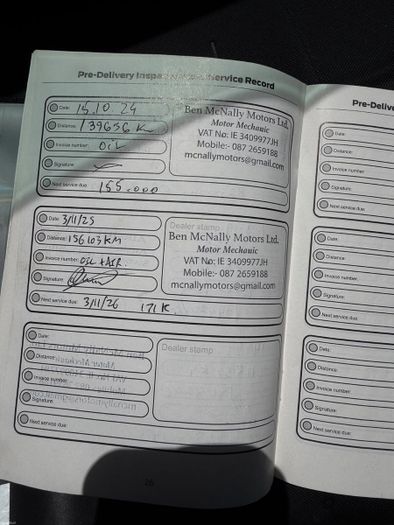 Pre-Delivery Inspe Service Record
Date: 15.10.24
Distance: 139656 K
Invoice number: OIL
Signature:
Next service due: 155.000
Ben McNally Motors Ltd.
Motor Mechanic
VAT No: IE 3409977JH
Mobile:- 087 2659188
mcnallymotors@gmail.com
Date: 3/11/25
Distance: 156103 KM
Invoice number: OIL + AIR
Signature:
Next service due: 3/11/26 171 K
Dealer stamp
Ben McNally Motors Ltd.
Motor Mechanic
VAT No: IE 3409977JH
Mobile:- 087 2659188
mcnallymotors@gmail.com
Date:
Distance:
Invoice number:
Signature:
Next service due:
Dealer stamp
26
Pre-Deliv
Date:
Distance:
Invoice number:
Signature:
Next service due:
Date:
Distance:
Invoice number:
Signature:
Next service due:
Date:
Distance:
Invoice number:
Signature:
Next service due: